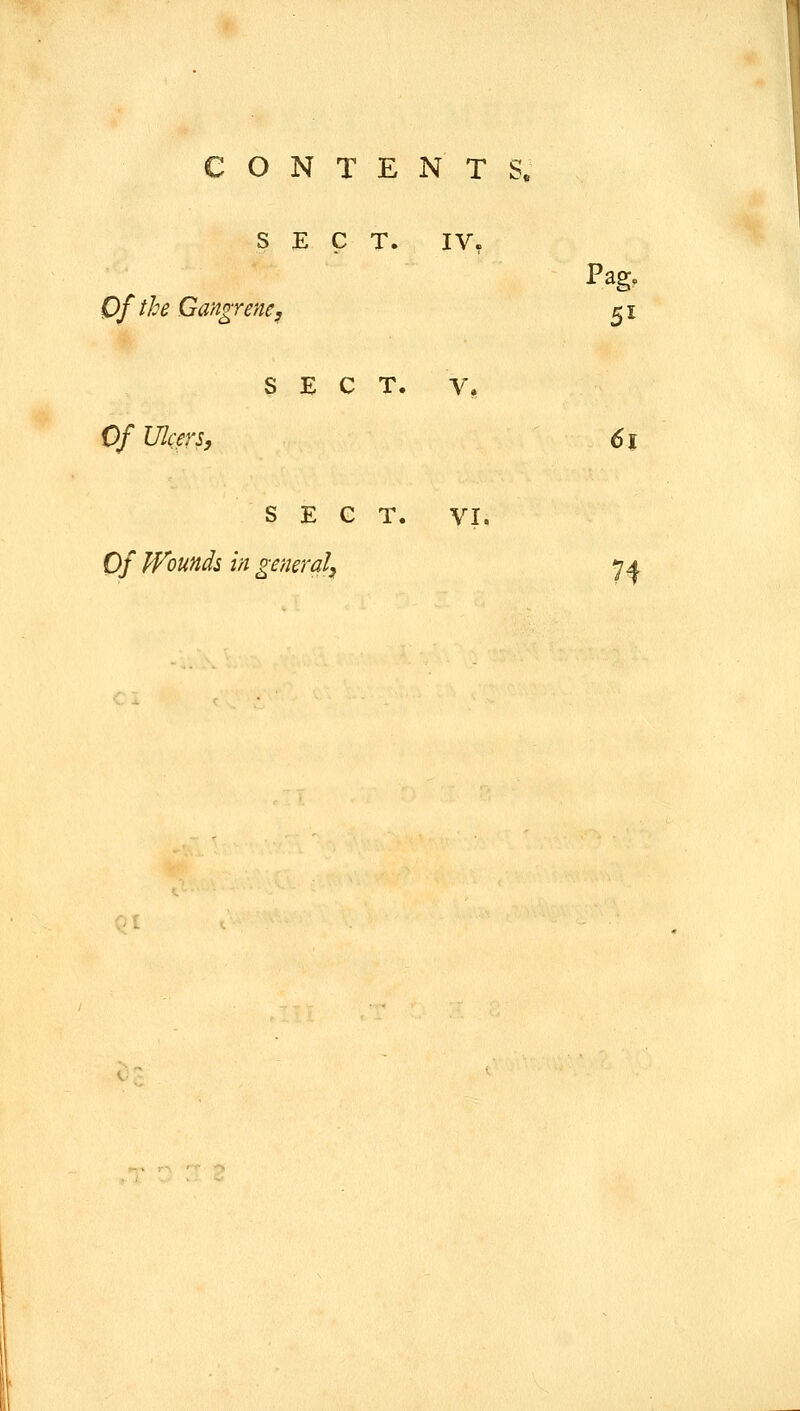 CONTENTS.
SECT. IV.
Pag.
Of the Gangrene, 51
SECT. V.
Of Ulcers, 61
SECT. VI.
Of Wounds in general, 74